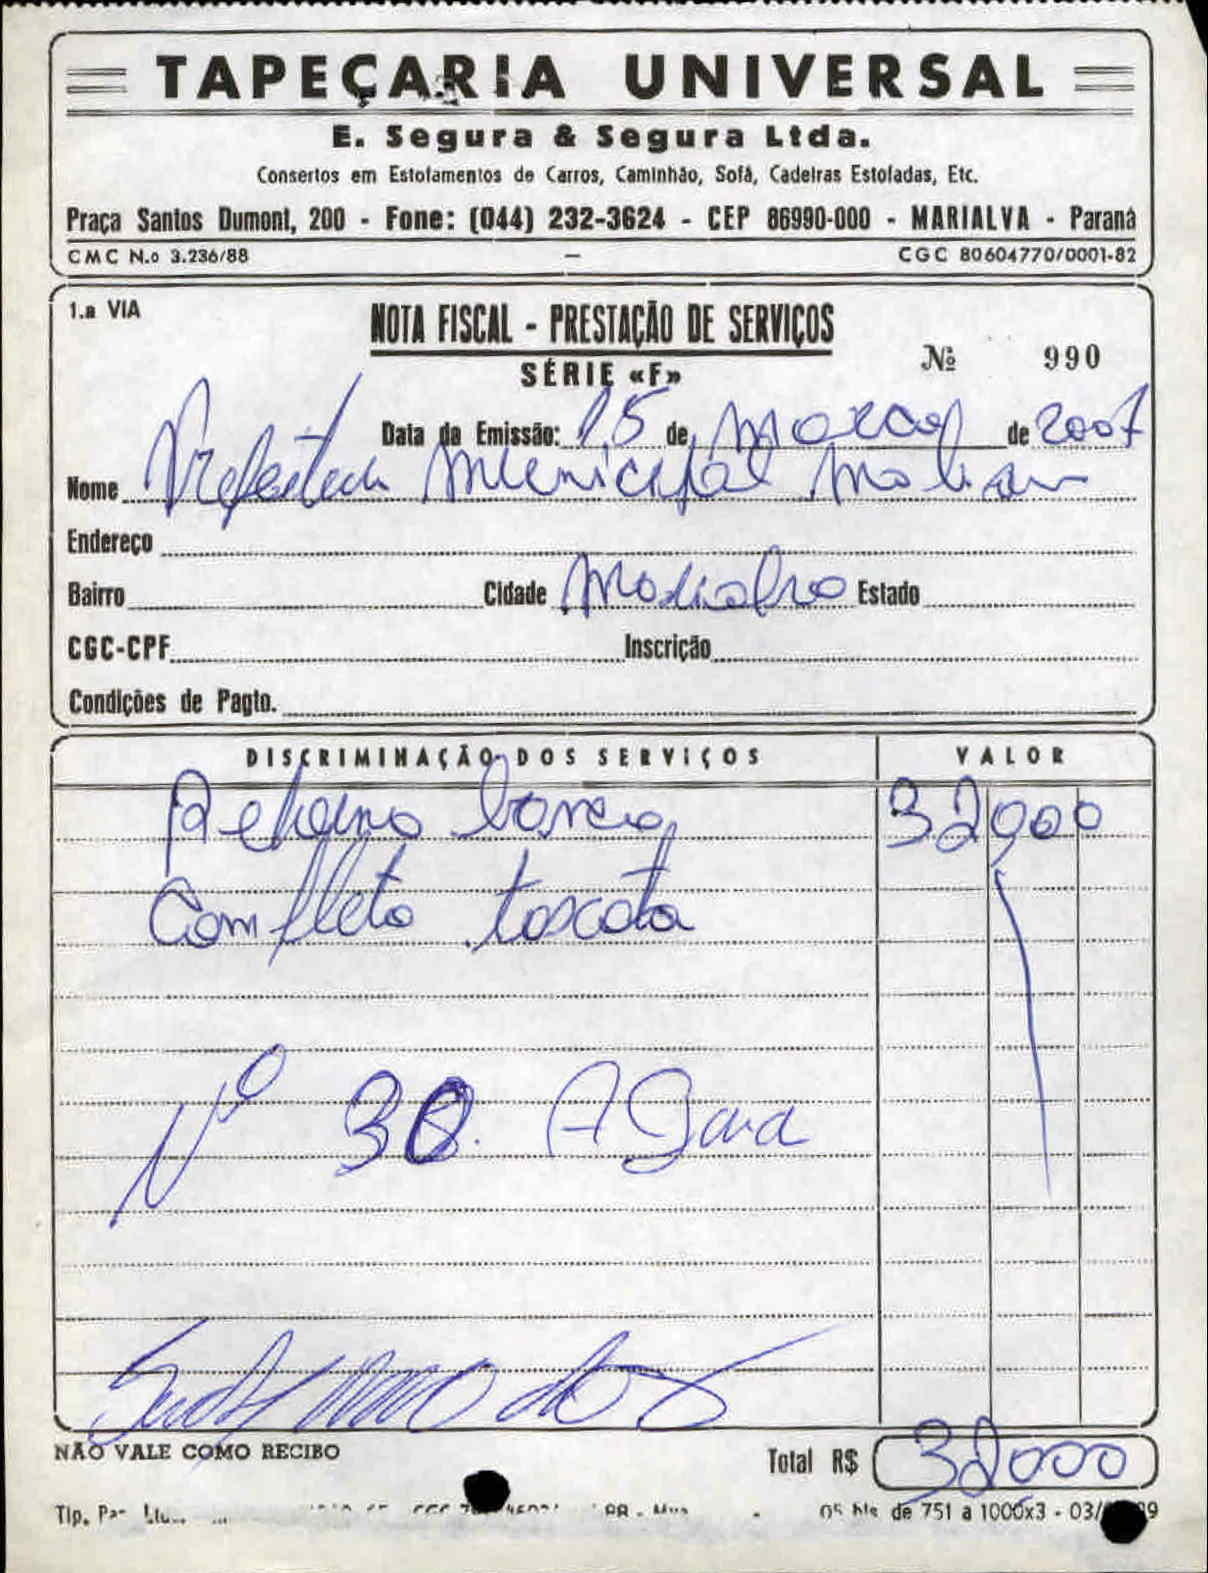 TAPEÇARIA UNIVERSAL
E. Segura & Segura Ltda.
Consertos em Estofamentos de Carros, Caminhão, Sofá, Cadeiras Estofadas, Etc.
Praça Santos Dumont, 200 - Fone: (044) 232-3624 - CEP 86990-000 - MARIALVA - Paraná
CMC N.o 3.236/88 - CGC 80604770/0001-82
1.a VIA
NOTA FISCAL - PRESTAÇÃO DE SERVIÇOS
Nº 990
SÉRIE «F»
Data da Emissão: 15 de março de 2007
Nome Prefeitura Municipal
Endereço
Bairro Cidade Marialva Estado
CGC-CPF Inscrição
Condições de Pagto.
DISCRIMINAÇÃO DOS SERVIÇOS VALOR
banco 320,00
Completo
Nº 38.
NÃO VALE COMO RECIBO
Total R$ 320,00
Tip. 05 bls de 751 a 1000x3 - 03/